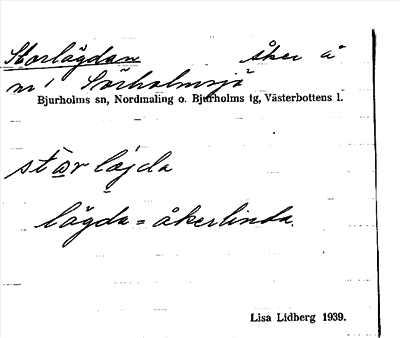 Storlägdan åker å
n:1 Sörholmsjö
Bjurholms sn, Nordmaling o. Bjurholms tg, Västerbottens l.
stɷr lǟjda
lägda = åkerlinda.
Lisa Lidberg 1939.